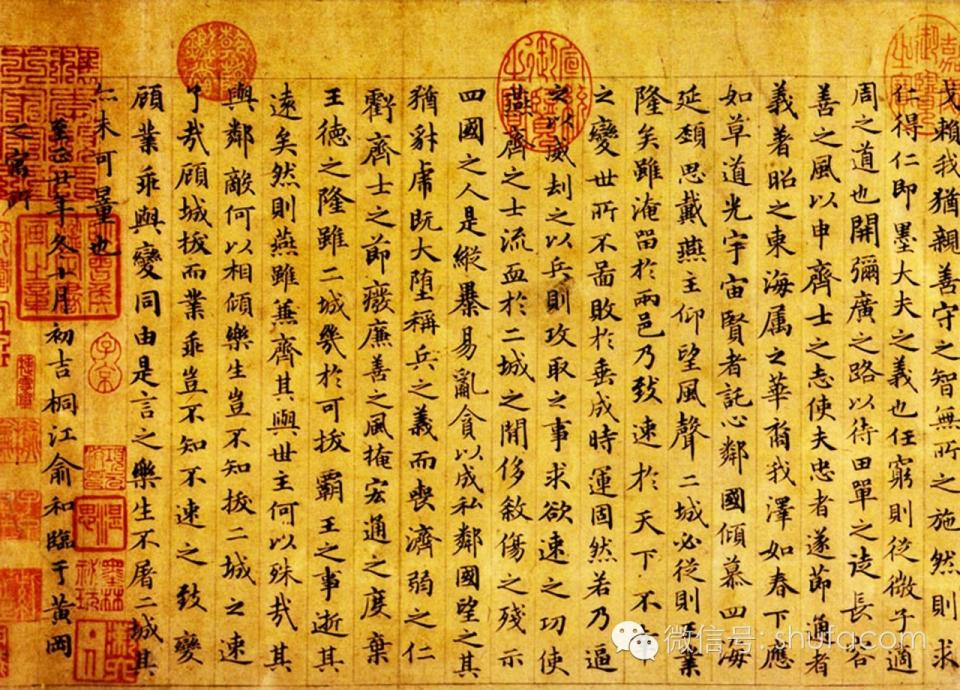 戈賴我猶親善守之智無所之施然則求
仁得仁即墨大夫之義也任窮則從微子適
周之道也開彌廣之路以待田單之徒長容
善之風以申齊士之志使夫忠者遂節通者
義著昭之東海属之華裔我澤如春下應
如草道光宇宙賢者託心鄰國傾慕四海
延頸思戴燕主仰望風聲二城必從則王業
隆矣雖淹留於兩邑乃致速於天下不
之變世所不啚敗於垂成時運固然若乃逼
之以威刦之以兵則攻取之事求欲速之功使
燕齊之士流血於二城之間侈煞傷之殘示
四國之人是縱暴易亂貪以成私鄰國望之其
猶豺虎既大堕稱兵之義而喪濟弱之仁
虧齊士之節癈廉善之風掩宏通之度棄
王德之隆雖二城幾於可拔霸王之事逝其
遠矣然則燕雖兼齊其與世主何以殊哉其
與鄰敵何以相傾樂生豈不知拔二城之速
了哉顧城拔而業乖豈不知不速之致變
顧業乖與變同由是言之樂生不屠二城其
亦未可量也
至正廿年冬十月初吉桐江俞和臨于黃岡
之寓所
微信号: shufacom